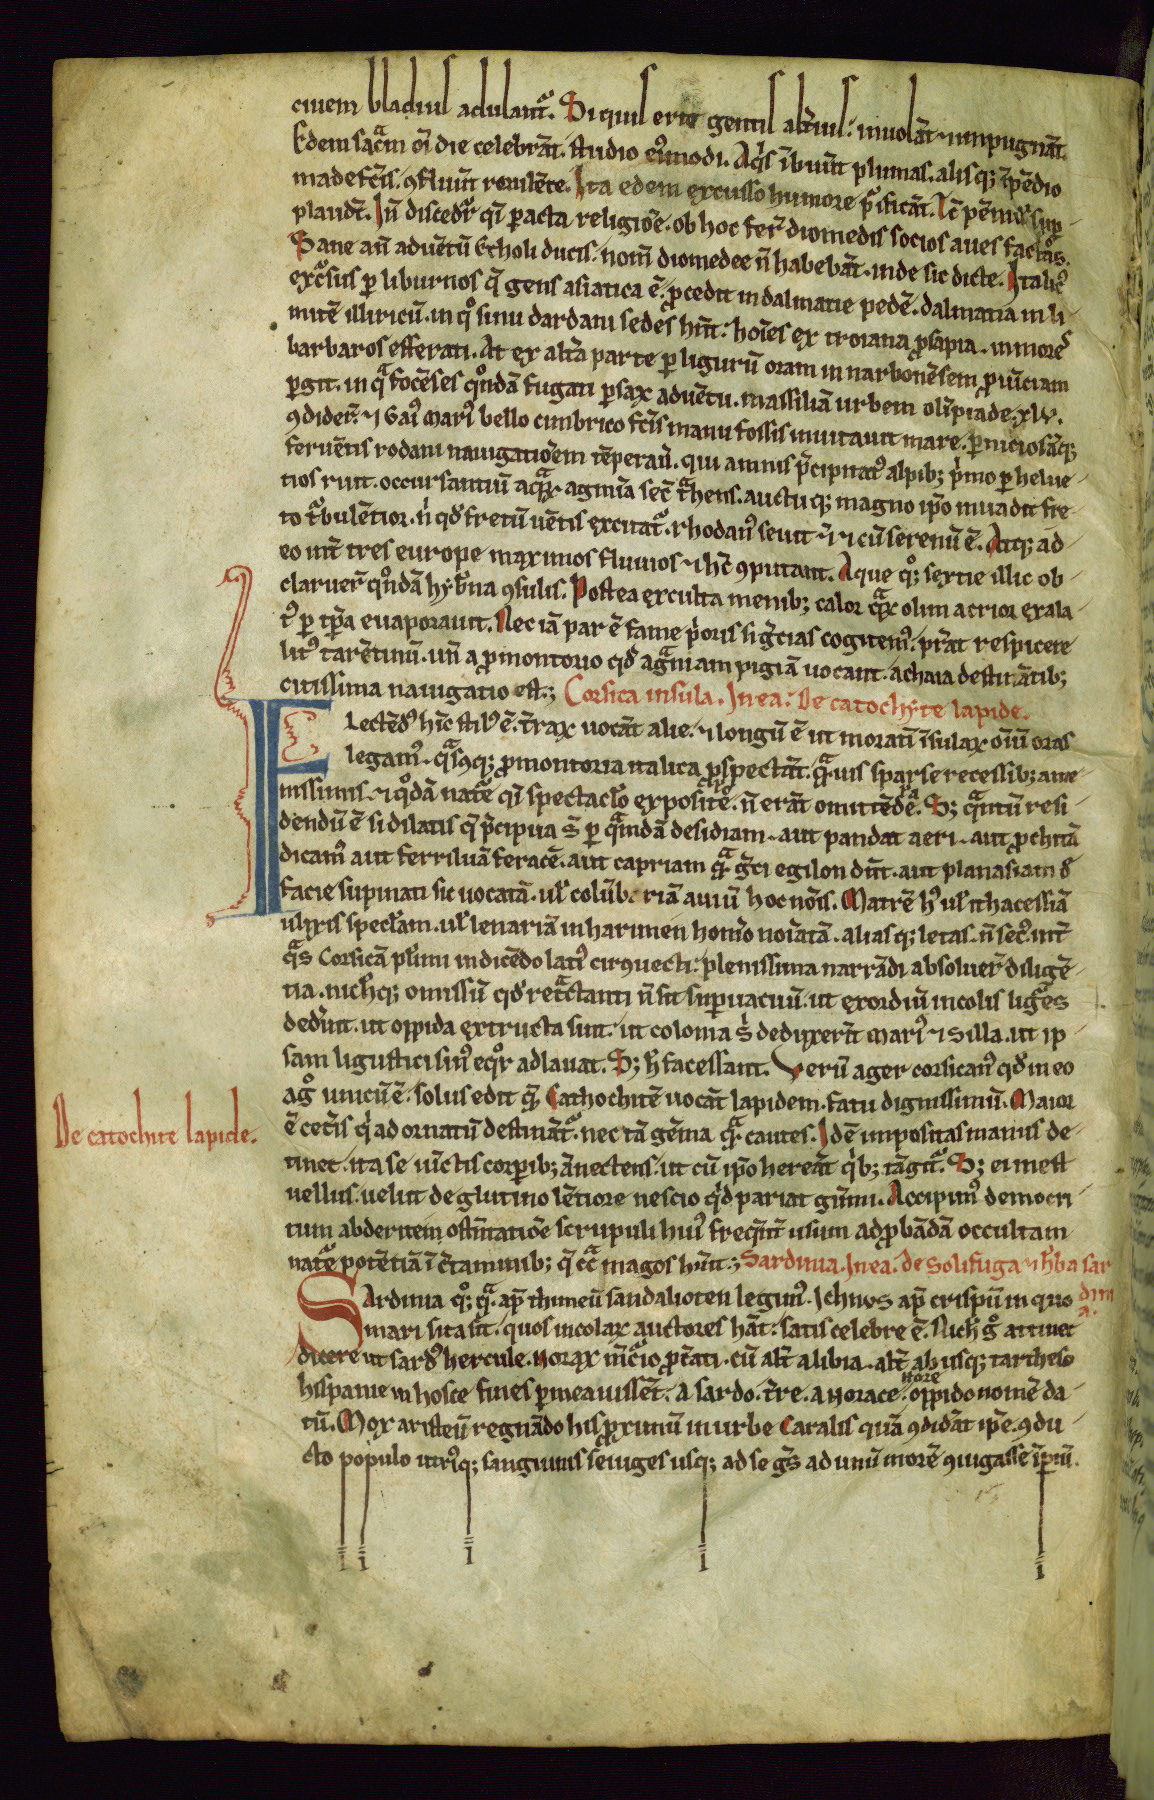 ciuem bladiuſ adulant᷑. Si quiſ erit gentiſ alt̄iuſ: inuolāt ⁊ inpugnāt.
Edem ſacͣm oī die celebrāt. ſtudio eiꝰmodi. Aqͥs ībuūt plumas. alisq; īpēdio
madefc̄is. ꝯfluūt rorulēte. Ita edem excuſſo humore pͥficāt.
plaudt̄. In̄ diſcedūt qͣſi ꝑacta religiōe. ob hoc fer̄t diomedis ſocios aues factos.
Sane an̄ aduētū Etholi ducis. nom̄ diomedee n̄ habebāt. inde ſic dicte. Italicꝰ
excͥſus ꝑ liburnos q̄ gens aſiatica ē. ꝓcedit in dalmatie pedē. dalmatia in li
mitē illiricū. in qͦ ſinu dardani ſedes hn̄t. hoīes ex troiana ꝓſapia. in mores
barbaros efferati. At ex alt̄a parte ꝑ ligurū oram in narbonēſem ꝓuīciam
ꝑgit. in qͣ focēſes qͦndā fugati perſaꝝ aduētu. maſſiliā urbem olīpiade. xlv.
ꝯdider̄t. ⁊ Gaiꝰ Mariꝰ bello cimbrico fc̄is manu foſſis inuitauit mare. ꝑnicioſāq;
feruētis rodani nauigatiōem tēperauit. qui amnis p̄cipitatꝰ alpib; pͥmo ꝑ helue
tios ruit. occurſantiū aquaꝝ agmīa ſec̄ tͣhens. auctuq; magno ip̄o inuadit fre
to tͥbulētior. nͥ qd fretū uētis excitat᷑. rhodanꝰ ſeuit ⁊ cū ſerenū ē. Atq; ad
eo int̄ tres europe maximos fluuios ⁊ hc̄ ꝯputant. Aque qͦq; ſextie illic ob
claruer̄t qͦndā hybͥna ꝯſulis. Poſtea exculta menib; calor quaꝝ olim acrior exala
tꝰ ꝑ tp̄a euaporauit. Nec iā par ē fame pͥoris ſi gͤcias cogitemꝰ. pͣt reſpicere
litꝰ tarētinū. un̄ a ꝓmontorio qd agͣ iampigiā uocant. achaia deſtināntib;
citiſſima nauigatio eſt.; Corſica inſula. In ea: De catochyte lapide.
Flectēdꝰ hīc ſtilꝰ ē. t̄raꝝ uocāt alie. ⁊ longū ē ut moratī īſulaꝝ oīū oras
legamꝰ. qͣſcūq; ꝓmontoria italica ꝓſpectāt. qͣuis ſparſe receſſib; ame
niſſimis. ⁊ qͦdā nature qͣſi ſpectaclo expoſite. n̄ erāt omittēde. S; qͣntū reſi
dendū ē ſi dilatis q̄ p̄cipua ſ̄ ꝑ quandā deſidiam. aut pandat aeri. aut ꝓchitā
dicamꝰ aut ferri iluā feracē. aut capriam quā gͤci egilon dn̄t. aut planaſiam d
facie ſupinati ſic uocatā. ul colūbariā auiū hoc nōis. Matrē hꝰ ul ithaceſſiā
ulixis ſpecl̄am. ul lenariā inharimen homo noīatā. aliasq; letas. n̄ ſecꝰ int̄
qͣs Corſicā pl̄imi in dicēdo latiꝰ cirꝯuecti. pleniſſima narrādi abſoluer̄t diligē
tia. nichq; omiſſū qd retͣctanti n̄ ſit ſupuacuū. ut exordiū incolis ligͥes
dederint. ut oppida extructa ſunt. ut colonia s̄ deduxerīt Mariꝰ ⁊ Silla. ut ip
ſam liguſtici ſinꝰ eqͦr adlauat. S; h̄ faceſſant. Verū ager corſicanꝰ qd in eo
agͦ unicū ē. ſolus edit quē Cathochitē uocāt lapidem. fatu digniſſimū. Maior
ē cet̄is qͥ ad ornatū deſtināt᷑. nec tā gēma quā cautes. Idē impoſitas manus de
tinet. ita ſe iūctis corꝑib; ānectens. ut cū ip̄o hereāt qͥb; tāgit᷑. S; ei ineſt
uellus. uelut de glutino lētiore neſcio qͥd pariat gūmi. Accipimꝰ democri
tum abderitem oſtn̄tatiōe ſcrupuli huiꝰ freqn̄t uſum ad ꝓbādā occultam
nature potētiā ī c̄taminib; q̄ cͣ magos hn̄it.; Sardinia. In ea. de Solifuga ⁊ h̄ba ſar
dini
a.
De catochite lapide.
Sardinia qͦ; quā ap̄ thimeū ſandalioten legimꝰ. Ichnos ap̄ criſpū in quo
mari ſita ſit. quos incolaꝝ auctores hāt. ſatis celebre ē. Nich gͦ attinet
dicere ut ſardꝰ hercule. Norax m̄cͥio ꝓcͣti. cū alt̄ a libia. alt̄ ab uſq; tartheſo
hiſpanie in hoſce fines ꝑmeauiſſēt. a ſardo. t̄re. a Norace. nore oppido nomē da
tū. Mox ariſteū regnādo his ꝓximū in urbe Caralis quā ꝯdidāt ip̄e. ꝯiū
cto populo utrꝰq; ſanguinis ſeiuges uſq; ad ſe gēs ad unū morē ꝯiugaſſe īperiū.